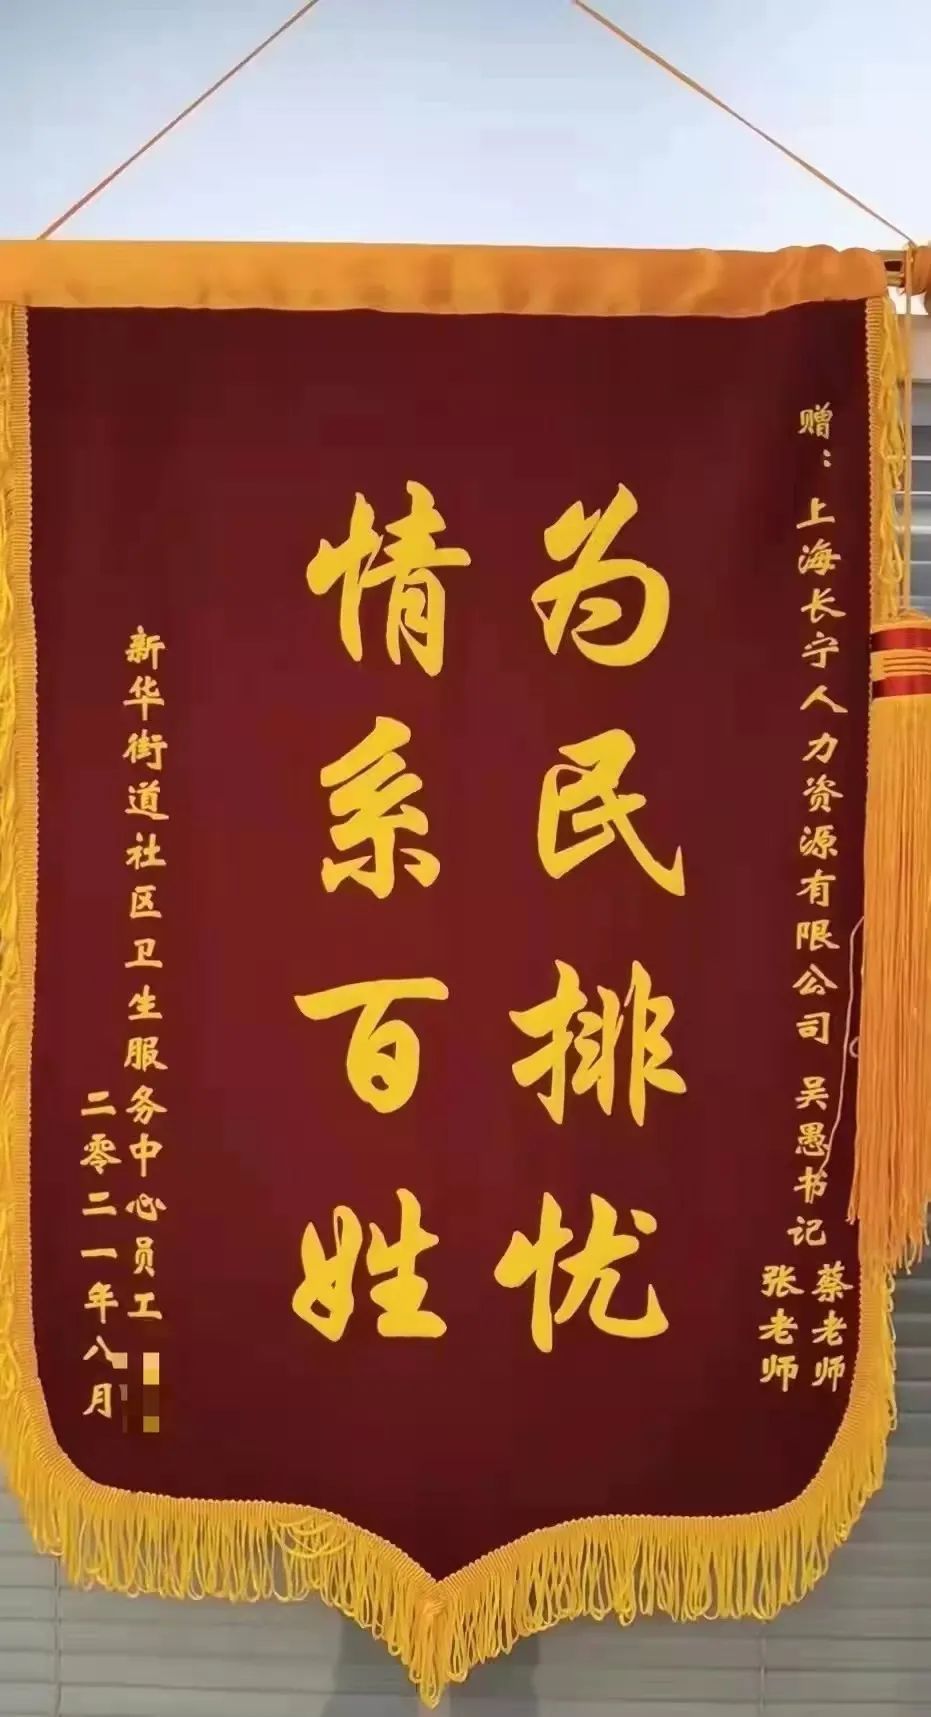 赠：上海长宁人力资源有限公司 吴愚书记
蔡老师
张老师
为民排忧
情系百姓
新华街道社区卫生服务中心员工
二零二一年八月